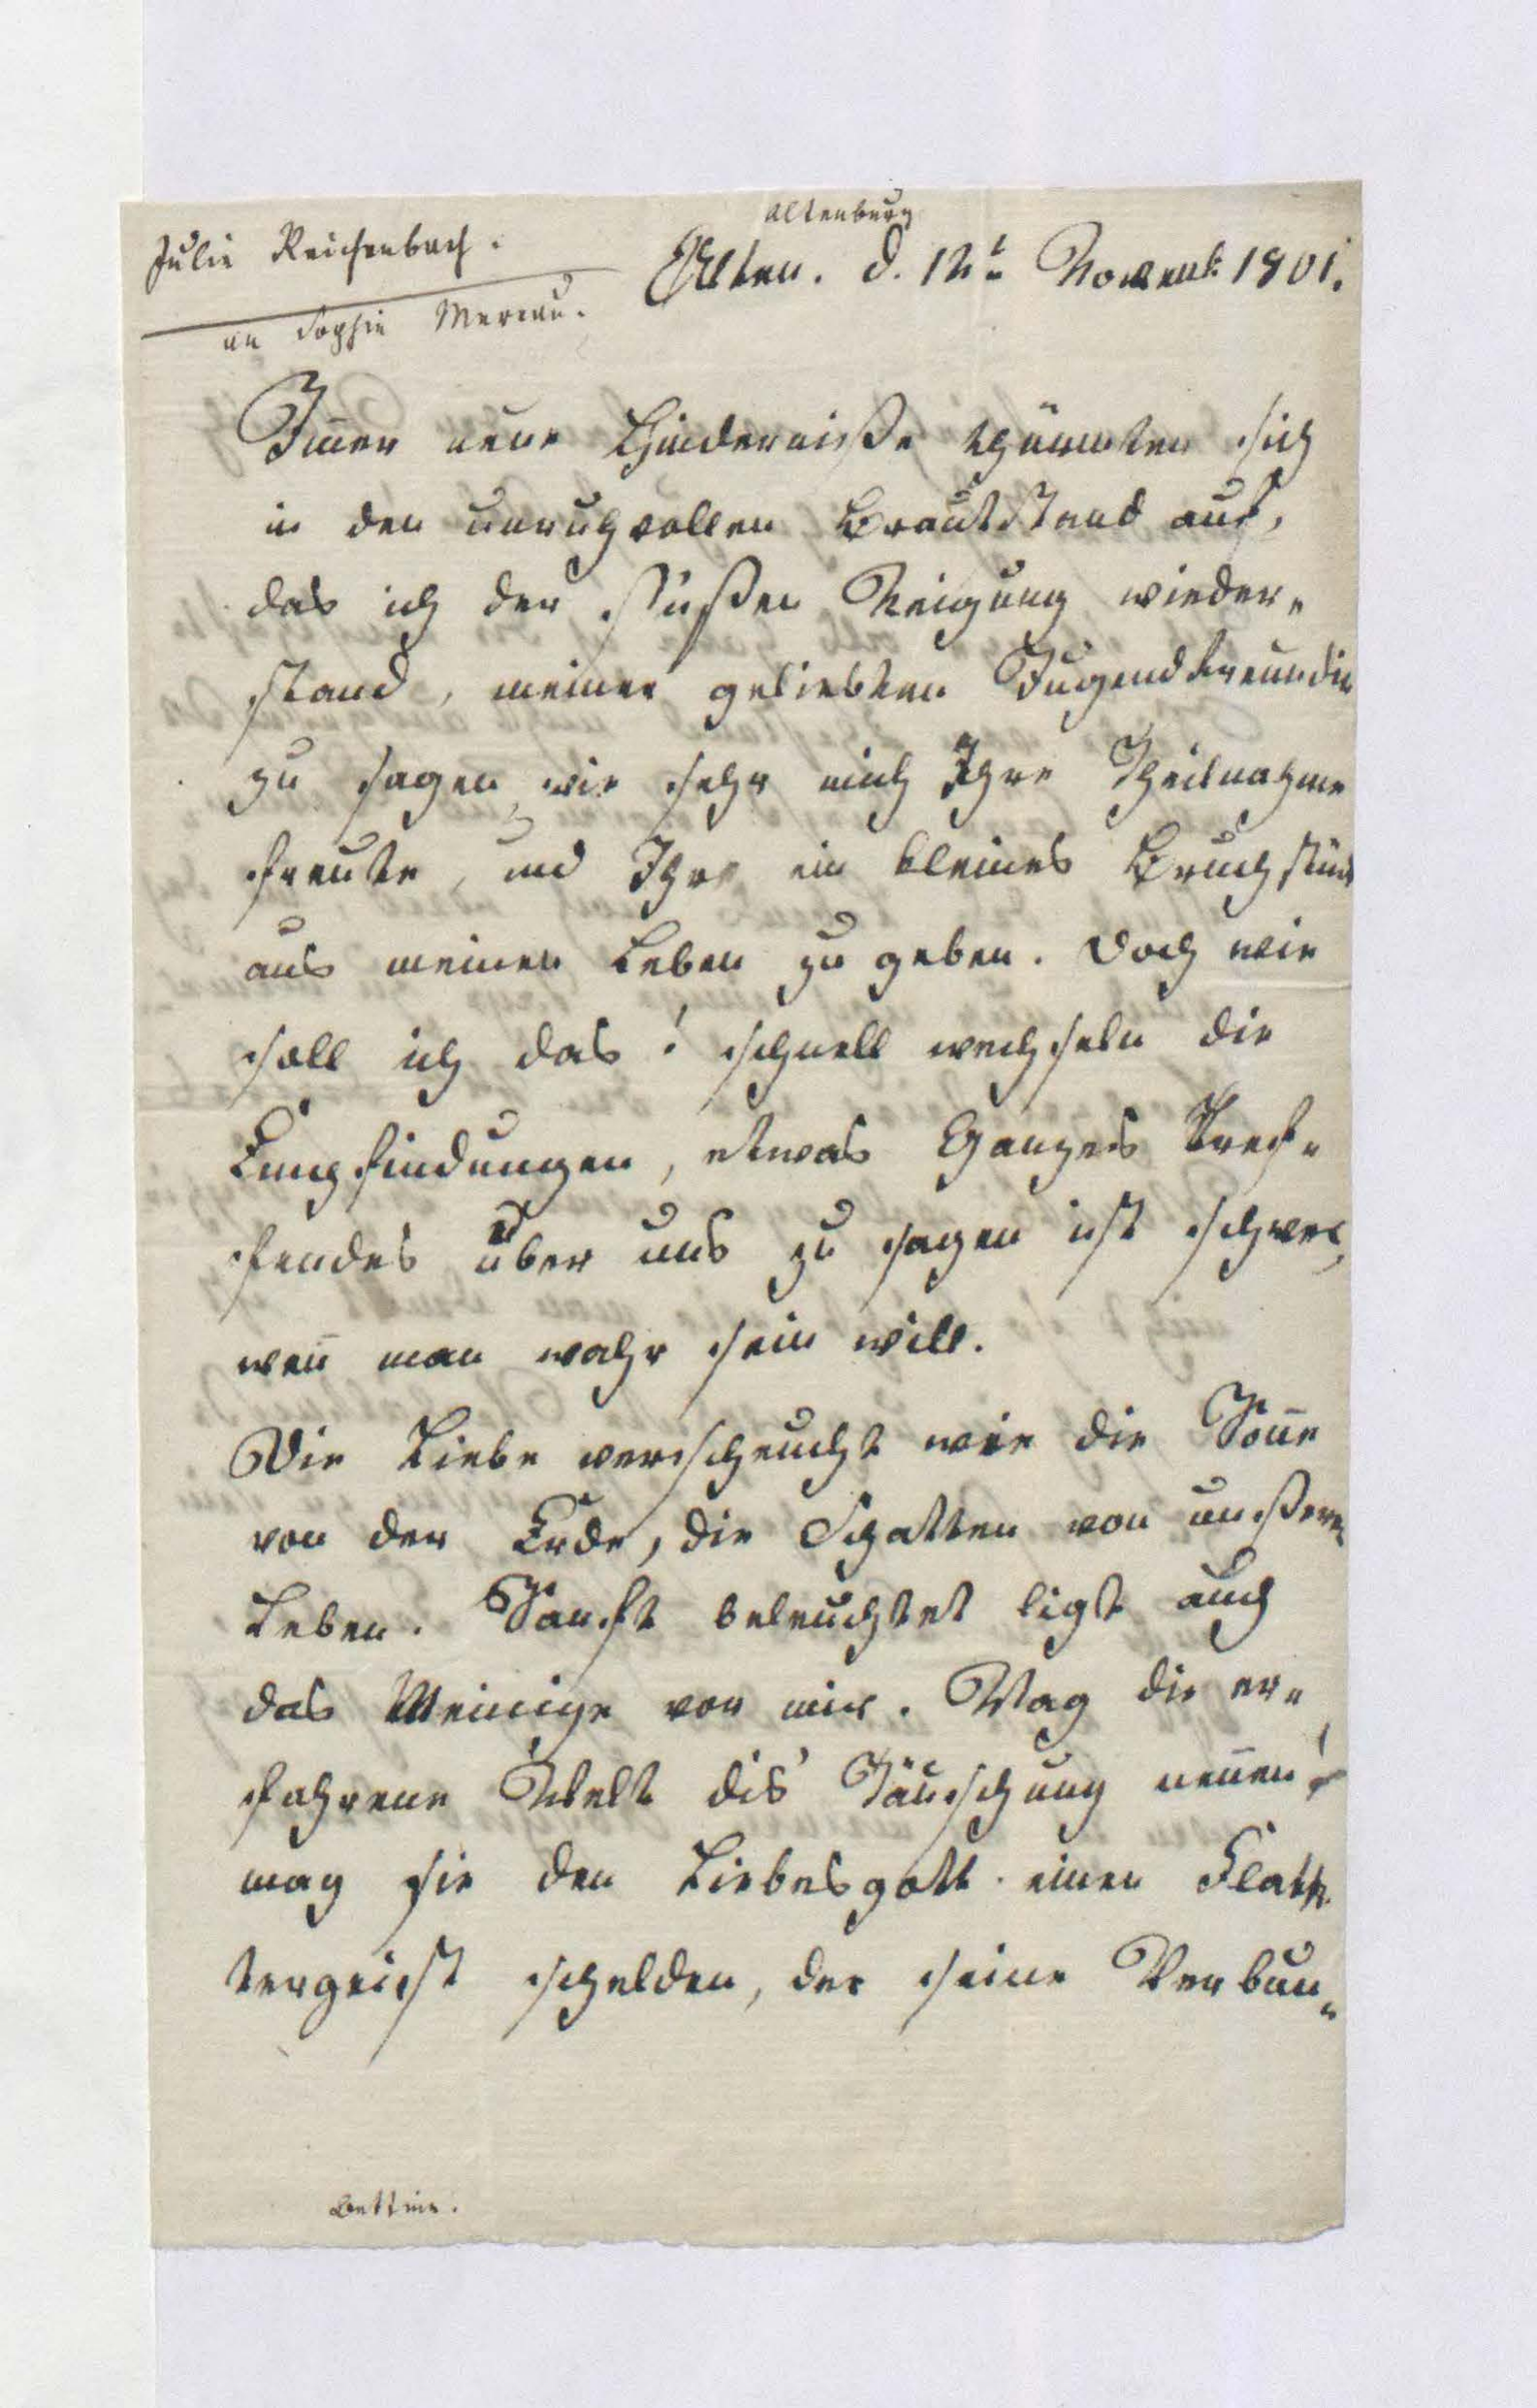 Altenburg
Julie Reichenbach.
Alten. d. 12t Novemb 1801.
an Sophie Mereau.
Im̅er neue Hinderniße thürmten sich
in den unruhvollen Brautstand auf,
das ich der süßen Neigung wieder„
stand, meiner geliebten Jugendfreundin
zu sagen, wie sehr mich Ihre Theilnahme
freute, und Ihr ein kleines Bruchstück
aus meinen Leben zu geben. Doch wie
soll ich das! schnell wechseln die
Empfindungen, etwas Ganzes Tref„
fendes über uns zu sagen ist schwer,
wen̅ man wahr sein will.
Die Liebe verscheucht wie die Son̅e
von der Erde, die Schatten von unßeren
Leben. Sanft beleuchtet ligt auch
das Meinige vor mir. Mag die er„
fahrene Welt dis' Täuschung nen̅en!
mag sie den Liebesgott einen Flatt„
tergeist schelden, der seine Verbun„
Bettine.